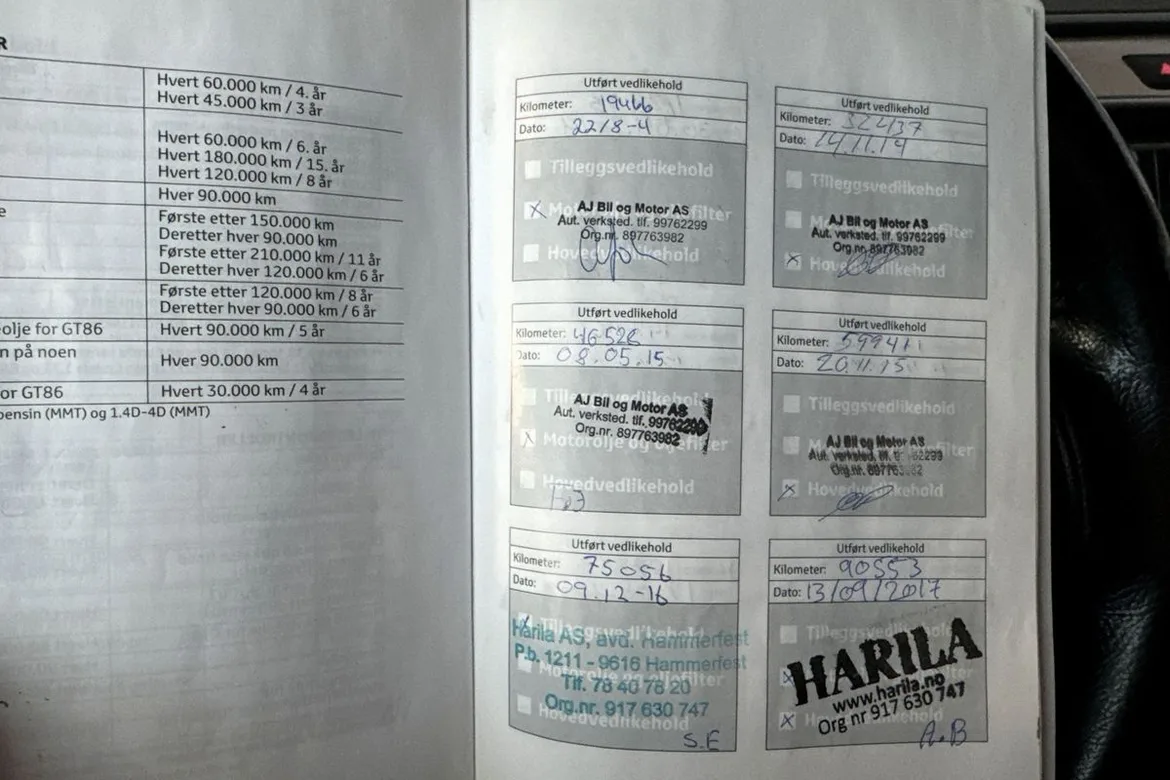 R
Hvert 60.000 km / 4. år
Hvert 45.000 km / 3 år
Hvert 60.000 km / 6. år
Hvert 180.000 km / 15. år
Hvert 120.000 km / 8 år
Hver 90.000 km
e
Første etter 150.000 km
Deretter hver 90.000 km
Første etter 210.000 km / 11 år
Deretter hver 120.000 km / 6 år
Første etter 120.000 km / 8 år
Deretter hver 90.000 km / 6 år
olje for GT86 Hvert 90.000 km / 5 år
n på noen Hver 90.000 km
or GT86 Hvert 30.000 km / 4 år
bensin (MMT) og 1.4D-4D (MMT)
Utført vedlikehold
Kilometer: 19466
Dato: 22/8-4
Tilleggsvedlikehold
AJ Bil og Motor AS
Aut. verksted. tlf. 99762299
Org.nr. 897763982
Hovedvedlikehold
Utført vedlikehold
Kilometer: 32437
Dato: 24.11.14
Tilleggsvedlikehold
AJ Bil og Motor AS
Aut. verksted. tlf. 99762299
Org.nr. 897763982
Hovedvedlikehold
Utført vedlikehold
Kilometer: 46528
Dato: 08.05.15
Tilleggsvedlikehold
AJ Bil og Motor AS
Aut. verksted. tlf. 99762299
Org.nr. 897763982
Motorolje og oljefilter
Hovedvedlikehold
Utført vedlikehold
Kilometer: 59941
Dato: 20.11.15
Tilleggsvedlikehold
AJ Bil og Motor AS
Aut. verksted. tlf.
Org.nr.
Hovedvedlikehold
Utført vedlikehold
Kilometer: 75056
Dato: 09.12-16
Tilleggsvedlikehold
Harila AS, avd. Hammerfest
P.b. 1211 - 9616 Hammerfest
Motorolje og oljefilter
Tlf. 78 40 78 20
Org.nr. 917 630 747
Hovedvedlikehold
S.E
Utført vedlikehold
Kilometer: 90553
Dato: 13/09/2017
Tilleggsvedlikehold
HARILA
www.harila.no
Org nr 917 630 747
A.B